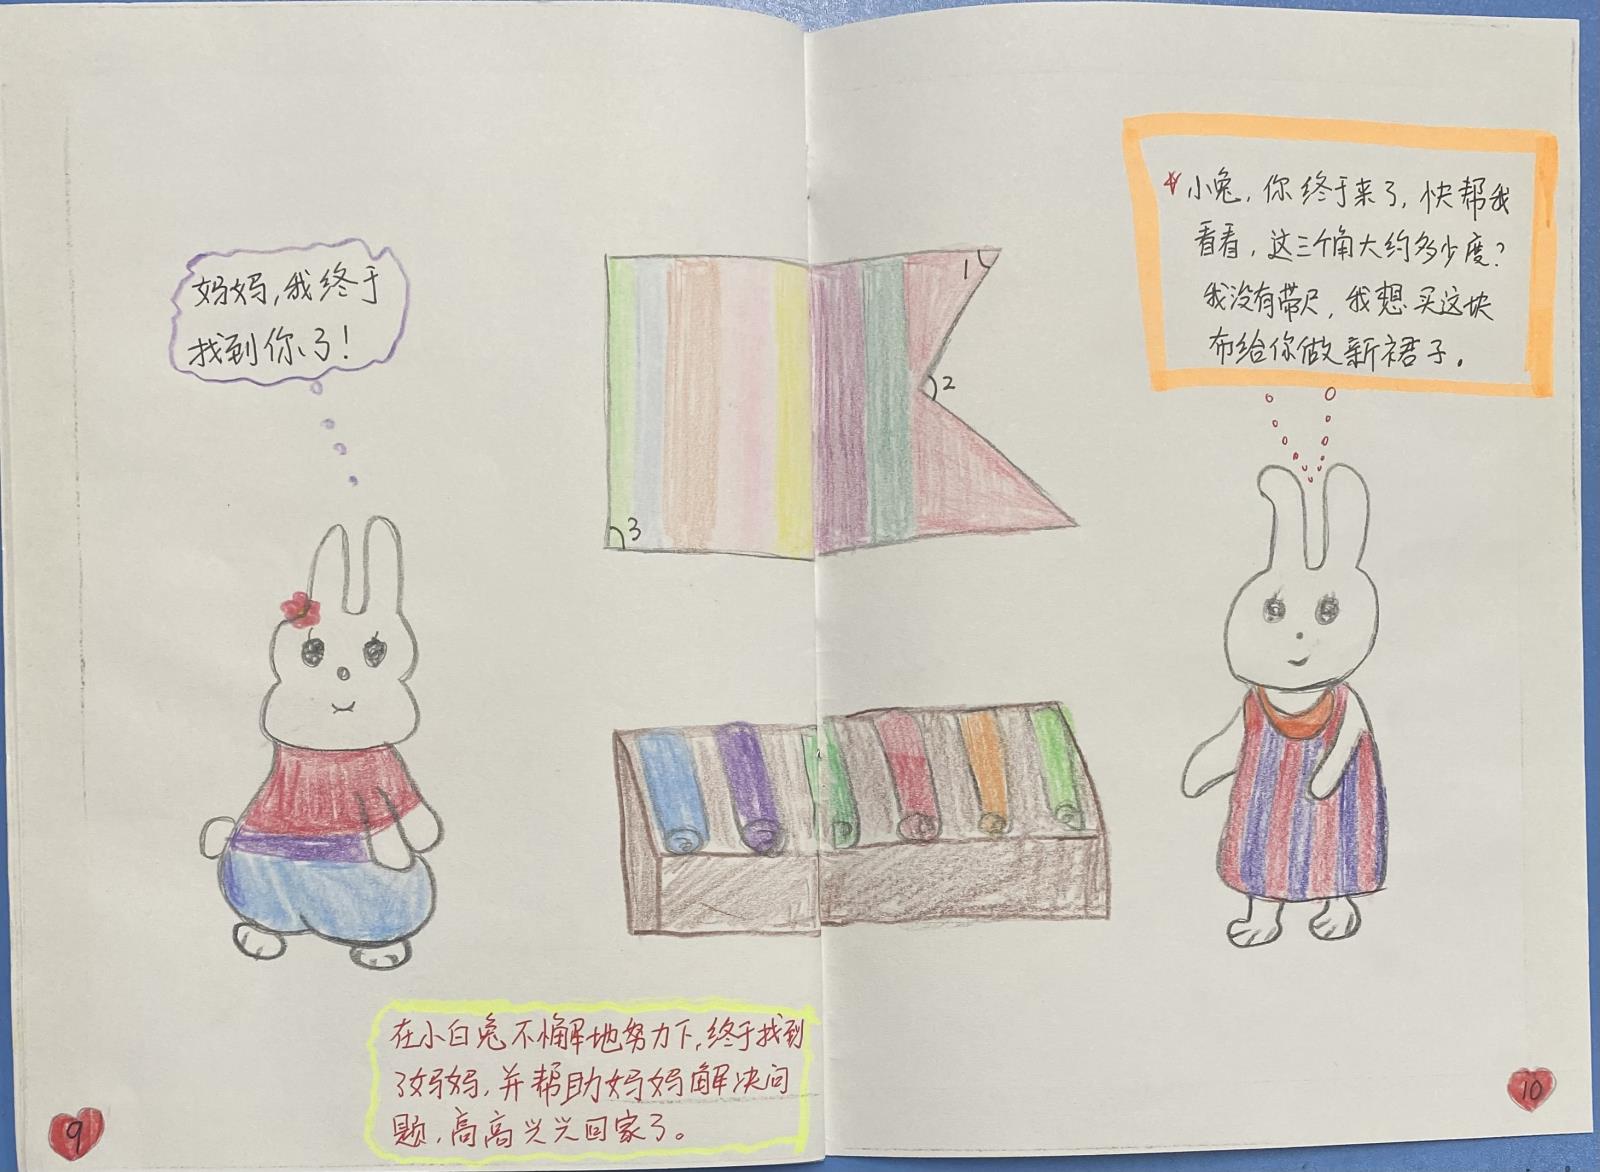 妈妈,我终于
找到你了!
1
2
3
小兔,你终于来了,快帮我
看看,这三个角大约多少度?
我没有带尺,我想买这块
布给你做新裙子。
在小白兔不懈地努力下,终于找到
了妈妈,并帮助妈妈解决问
题,高高兴兴回家了。
9
10